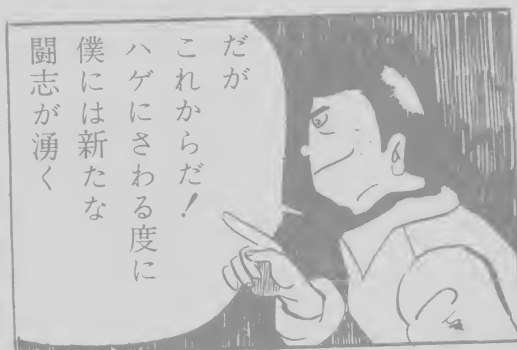 だが
これからだ!
ハゲにさわる度に
僕には新たな
闘志が湧く